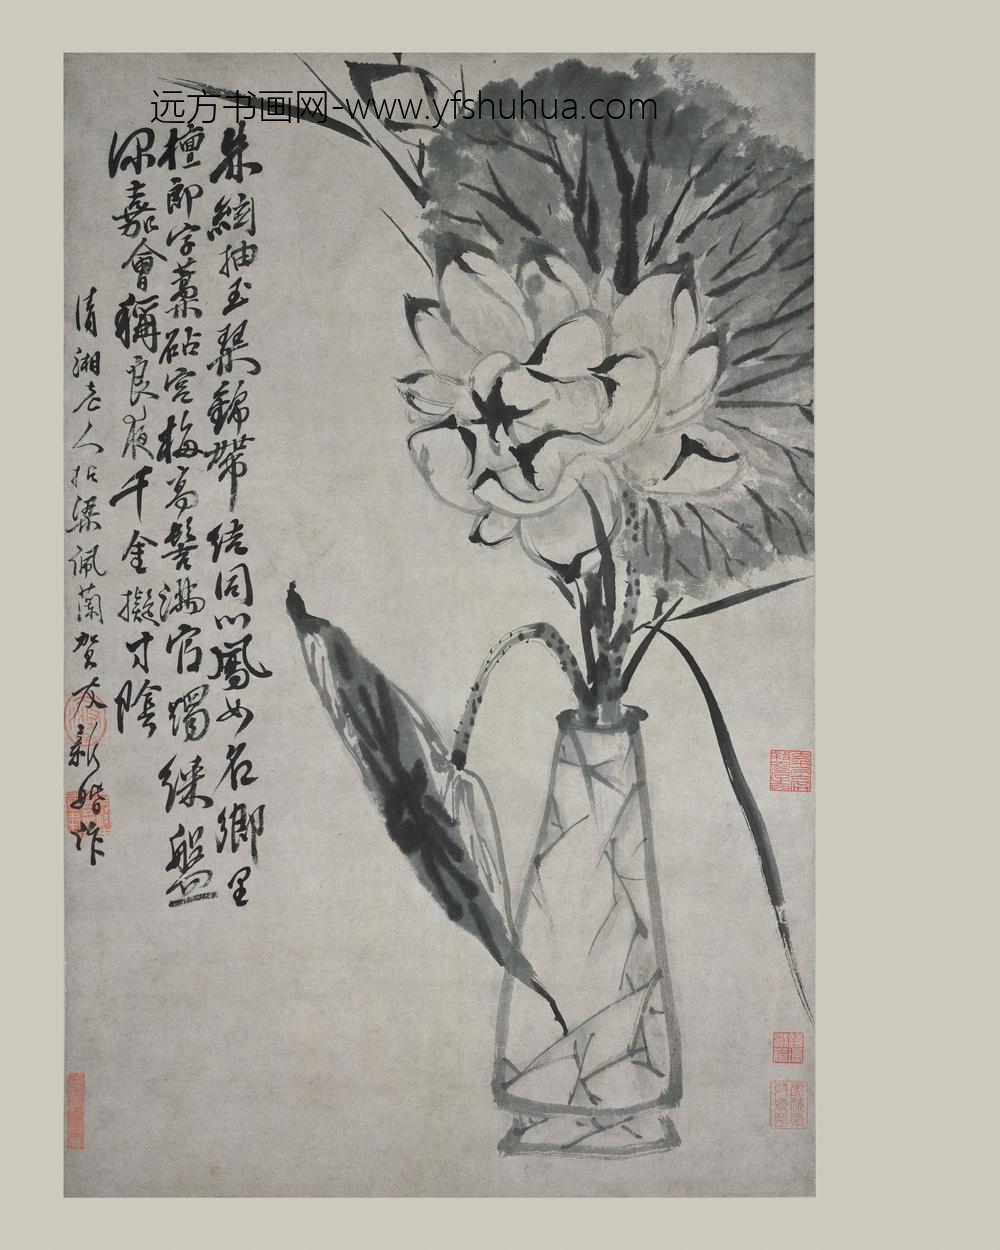 远方书画网-www.yfshuhua.com
朱絃抽玉琴錦帶結同心鳳女名鄉里
檀郎字藁砧宮梅高髻滿官燭綵盤
深嘉會稱良夜千金擬寸陰
清湘老人拈梁佩蘭賀友新婚作